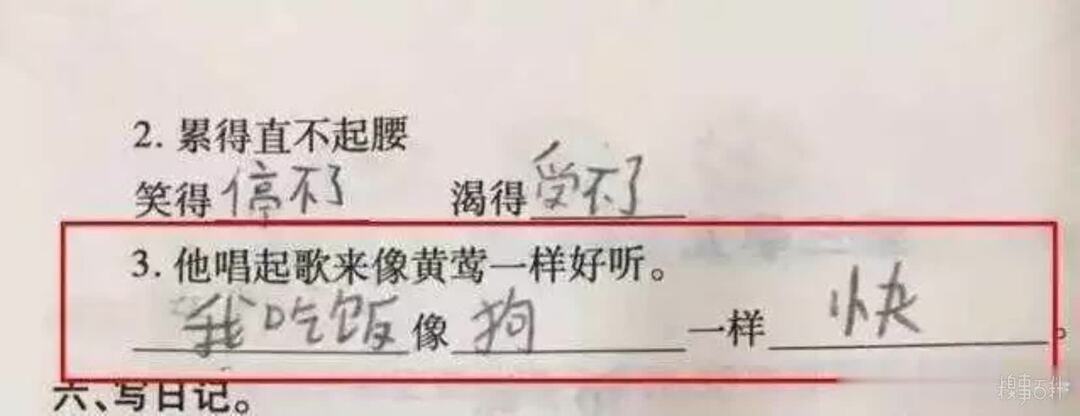 2. 累得直不起腰
笑得停不了 渴得受不了
3. 他唱起歌来像黄莺一样好听。
我吃饭像狗一样快。
六、写日记。
糗事百科